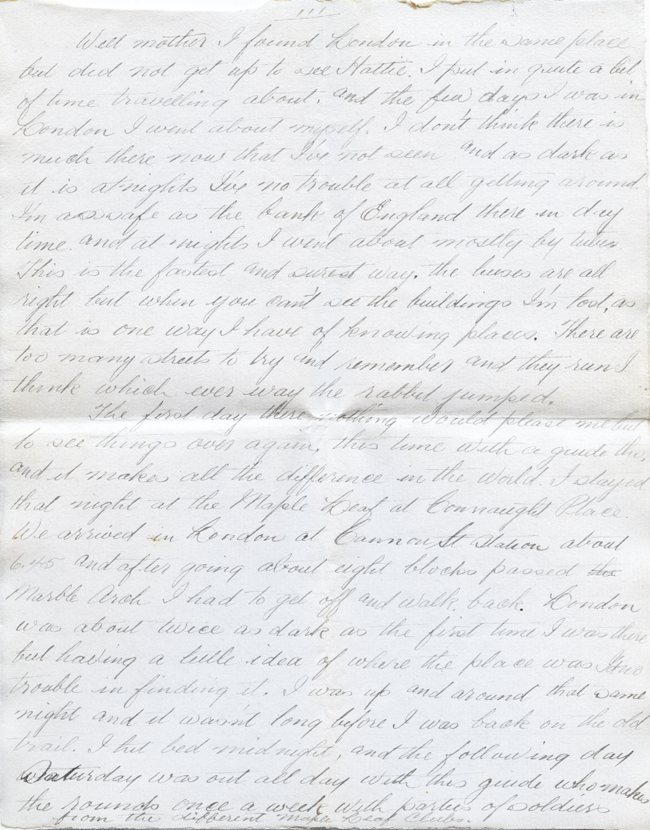 111
Well mother I found London in the same place
but did not get up to see Hattie. I put in quite a bit
of time travelling about, and the few days I was in
London I went about myself. I don't think there is
much there now that I've not seen and as dark as
it is at nights I've no trouble at all getting around.
I'm as safe as the bank of England there in day
time and at nights I went about mostly by tubes.
This is the fastest and surest way. the buses are all
right but when you can't see the buildings I'm lost, as
that is one way I have of knowing places. There are
too many streets to try and remember and they run I
think which ever way the rabbit jumped.
The first day there nothing would please me but
to see things over again, this time with a guide tho,
and it makes all the difference in the world. I stayed
that night at the Maple Leaf at Connaught Place.
We arrived in London at Cannon St Station about
6.45 and after going about eight blocks passed the
Marble Arch I had to get off and walk back. London
was about twice as dark as the first time I was there
but having a little idea of where the place was no
trouble in finding it. I was up and around that same
night and it wasn't long before I was back on the old
trail. I hit bed midnight, and the following day
Saturday was out all day with this guide who makes
the rounds once a week with parties of soldiers
from the different Maple Leaf Clubs.